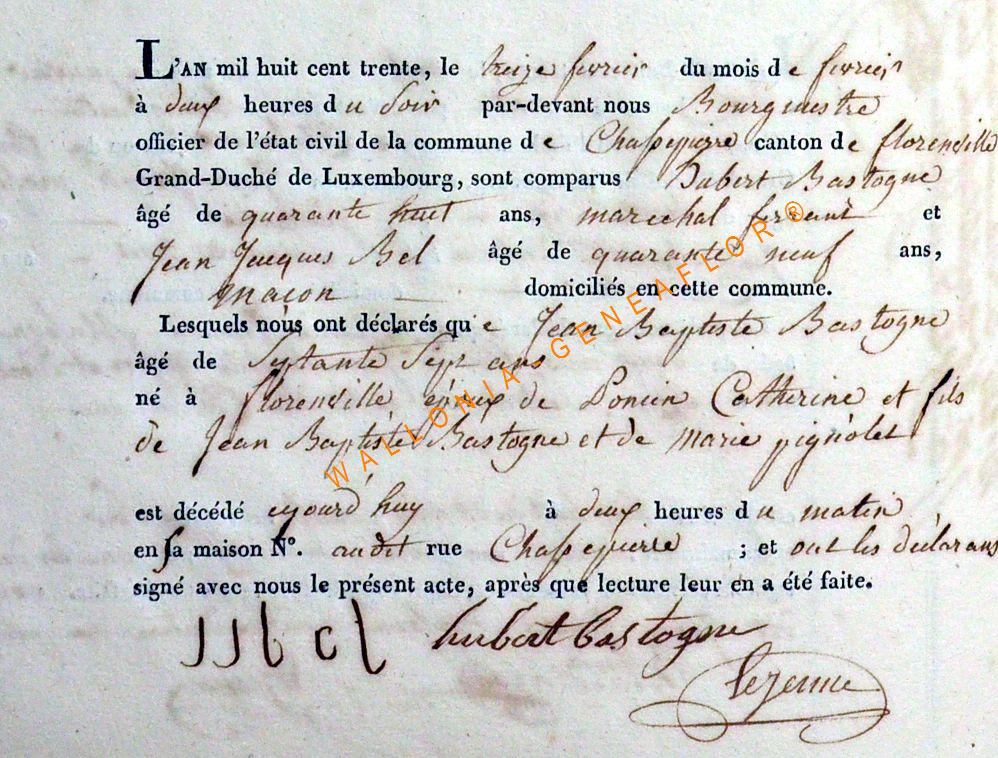 L'AN mil huit cent trente, le treize fevrier du mois de fevrier
à deux heures du Soir par-devant nous Bourgmestre
officier de l'état civil de la commune de Chassepierre canton de florenville
Grand-Duché de Luxembourg, sont comparus Hubert Bastogne
âgé de quarante huit ans, marechal ferrant et
Jean Jacques Bel âgé de quarante neuf ans,
maçon domiciliés en cette commune.
Lesquels nous ont déclarés que Jean Baptiste Bastogne
âgé de Septante Sept ans
né à florenville époux de Poncin Catherine et fils
de Jean Baptiste Bastogne et de marie pignolet
est décédé cejourd'huy à deux heures du matin
en sa maison N°. audit rue Chassepierre ; et ont les déclarans
signé avec nous le présent acte, après que lecture leur en a été faite.
JJ bel hubert bastogne
Lejeune
WALLONIA GENEAFLOR ®